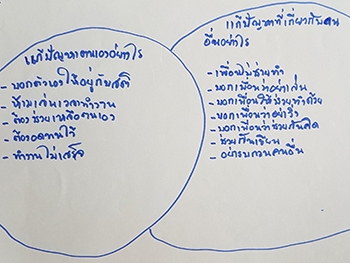 แก้ปัญหาตนเองอย่างไร
- บอกตัวเองให้อยู่กับสติ
- ห้ามเล่นเวลาทำงาน
- ต้องช่วยเหลือตนเอง
- ต้องอดทนไว้
- ทำงานไม่เสร็จ
แก้ปัญหาที่เกี่ยวกับคน
อื่นอย่างไร
- เพื่อนไม่ช่วยทำ
- บอกเพื่อนว่าอย่าเล่น
- บอกเพื่อนให้ช่วยทำด้วย
- บอกเพื่อนว่าอย่าวิ่ง
- บอกเพื่อนว่าช่วยกันคิด
- ช่วยกันเขียน
- อย่ารบกวนคนอื่น